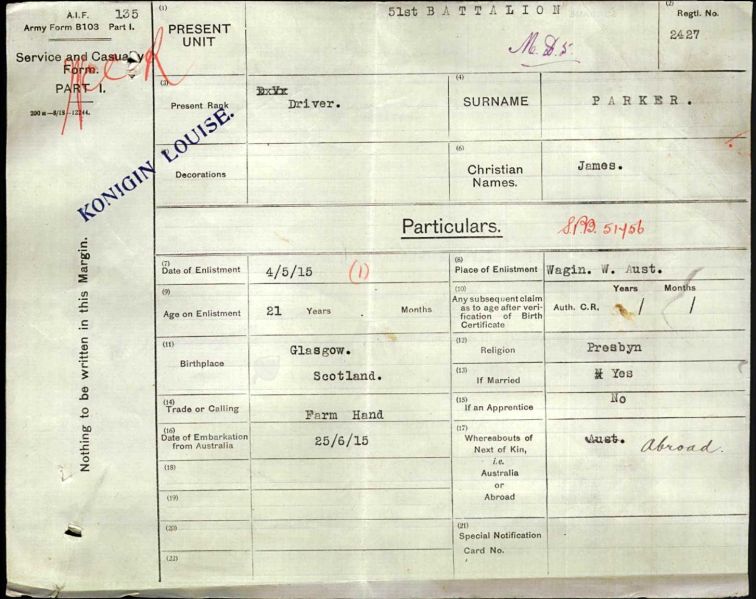 A.I.F. 135
Army Form B103 Part I.
Service and Casualty
Form.
PART I.
200 m—8/18—12244.
KONIGIN LOUISE.
Nothing to be written in this Margin.
(1)
PRESENT
UNIT
51st BATTALION
M.D.5.
(2)
Regtl. No.
2427
(3)
Present Rank
Driver.
(4)
SURNAME
PARKER.
Decorations
(6)
Christian
Names.
James.
Particulars.
(7)
Date of Enlistment
4/5/15
(1)
(8)
Place of Enlistment
Wagin. W. Aust.
(9)
Age on Enlistment
21 Years Months
(10)
Any subsequent claim
as to age after veri-
fication of Birth
Certificate
Years Months
Auth. C.R. / /
(11)
Birthplace
Glasgow.
Scotland.
(12)
Religion
Presbyn
(13)
If Married
Yes
(14)
Trade or Calling
Farm Hand
(15)
If an Apprentice
No
(16)
Date of Embarkation
from Australia
25/6/15
(17)
Whereabouts of
Next of Kin,
i.e.
Australia
or
Abroad
Aust. Abroad.
(18)
(19)
(20)
(21)
Special Notification
Card No.
(22)